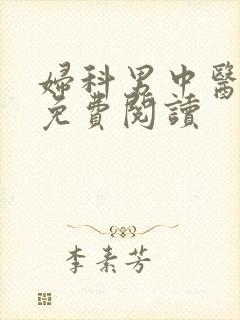 婦科男中醫
免費閱讀
李素芳